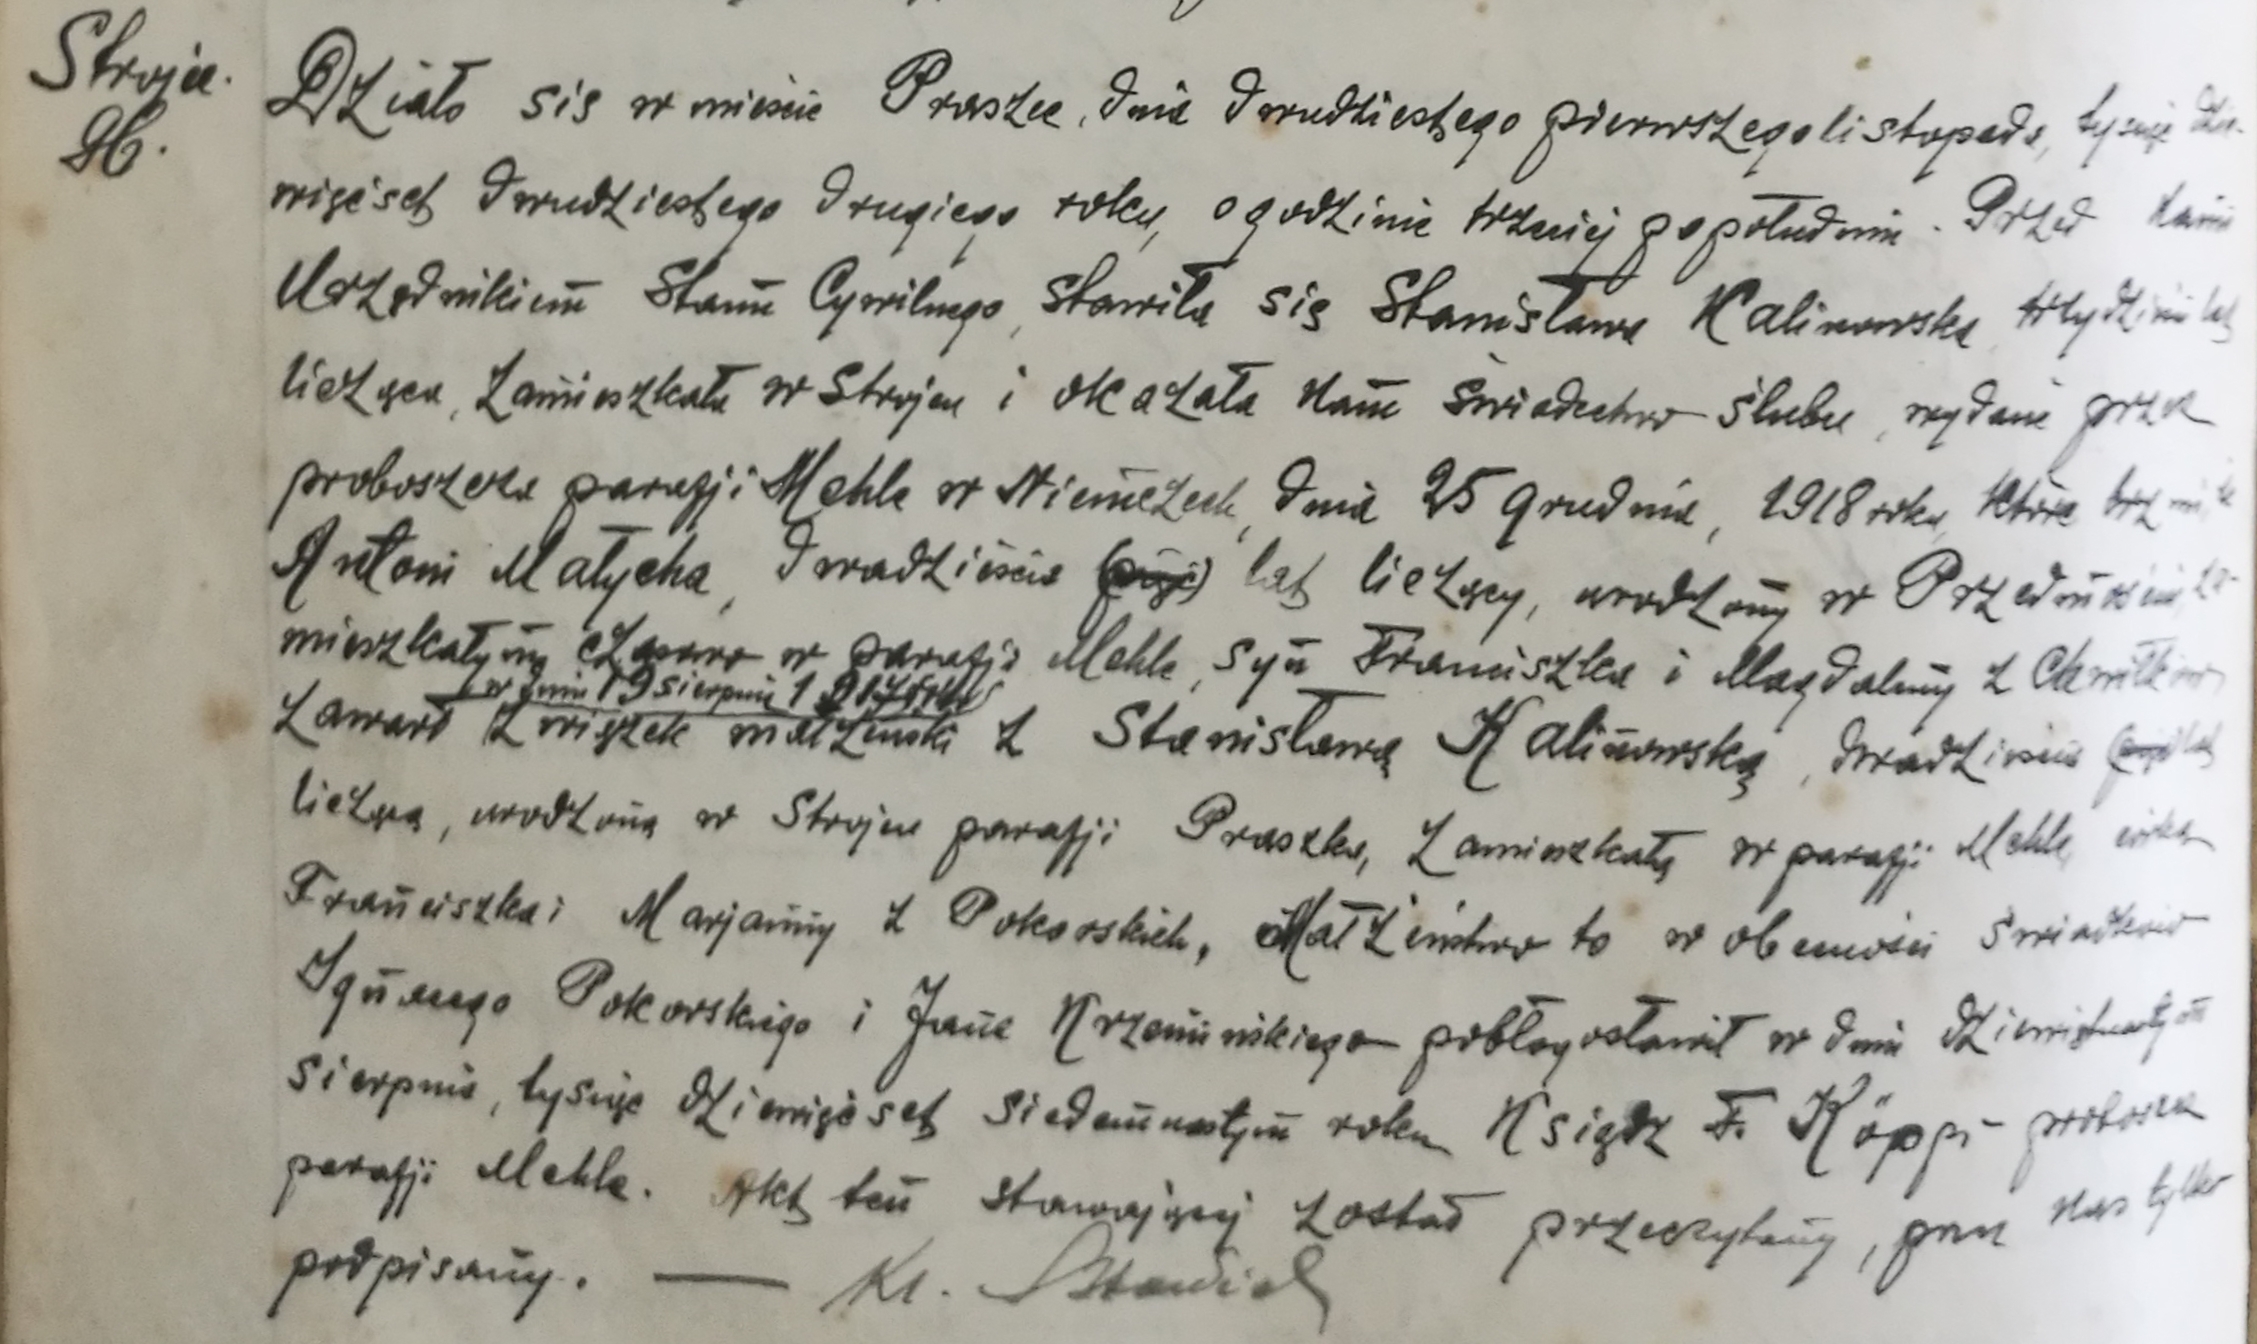 Strojec.
96.
Działo się w mieście Praszce, dnia dwudziestego pierwszego listopada, tysiąc dzie-
więćset dwudziestego drugiego roku, o godzinie trzeciej popołudniu. Przed Nami
Urzędnikiem Stanu Cywilnego, stawiła się Stanisława Kalinowska, lat
licząca, zamieszkała w Strojcu i okazała Nam świadectwo ślubu, wydane przez
proboszcza parafji Mehle w Niemczech, dnia 25 grudnia, 1918 roku, które brzmi, że
Antoni Małycha, dwadzieścia (pięć) lat liczący, urodzony w Przedmościu, za-
mieszkałym czasowo w parafji Mehle, syn Franciszka i Magdaleny z
w dniu 19 sierpnia 1917 roku
zawarł związek małżeński z Stanisławą Kalinowską, dwadzieścia (pięć) lat
liczącą, urodzoną w Strojcu parafji Praszka, zamieszkałą w parafji Mehle, córką
Franciszka i Marjanny z Pokorskich, Małżeństwo to w obecności świadków
Ignacego Pokorskiego i Jana Krzemińskiego pobłogosławił w dniu dziewiętnastym
sierpnia, tysiąc dziewięćset siedemnastym roku Ksiądz F. Köppi proboszcz
parafji Mehle. Akt ten stawającej został przeczytany, przez Nas tylko
podpisany. — Kl.